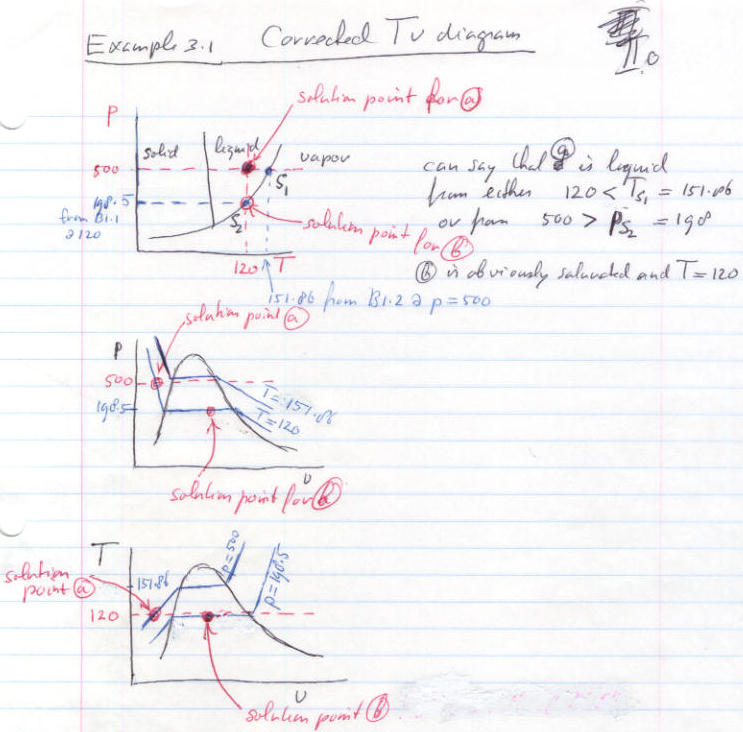 Example 3.1 Corrected Tv diagram
II.0
solution point for (a)
P
solid liquid vapor
500
S1
198.5
from B1.1
@120
S2
solution point
for (b)
120 T
151.86 from B1.2 @ p=500
can say that (a) is liquid
from either 120 < TS1 = 151.86
or from 500 > PS2 = 198
(b) is obviously saturated and T=120
solution point (a)
P
500
198.5
T=151.86
T=120
v
solution point for (b)
T
solution
point (a)
151.86
p=500
p=198.5
120
v
solution point (b)